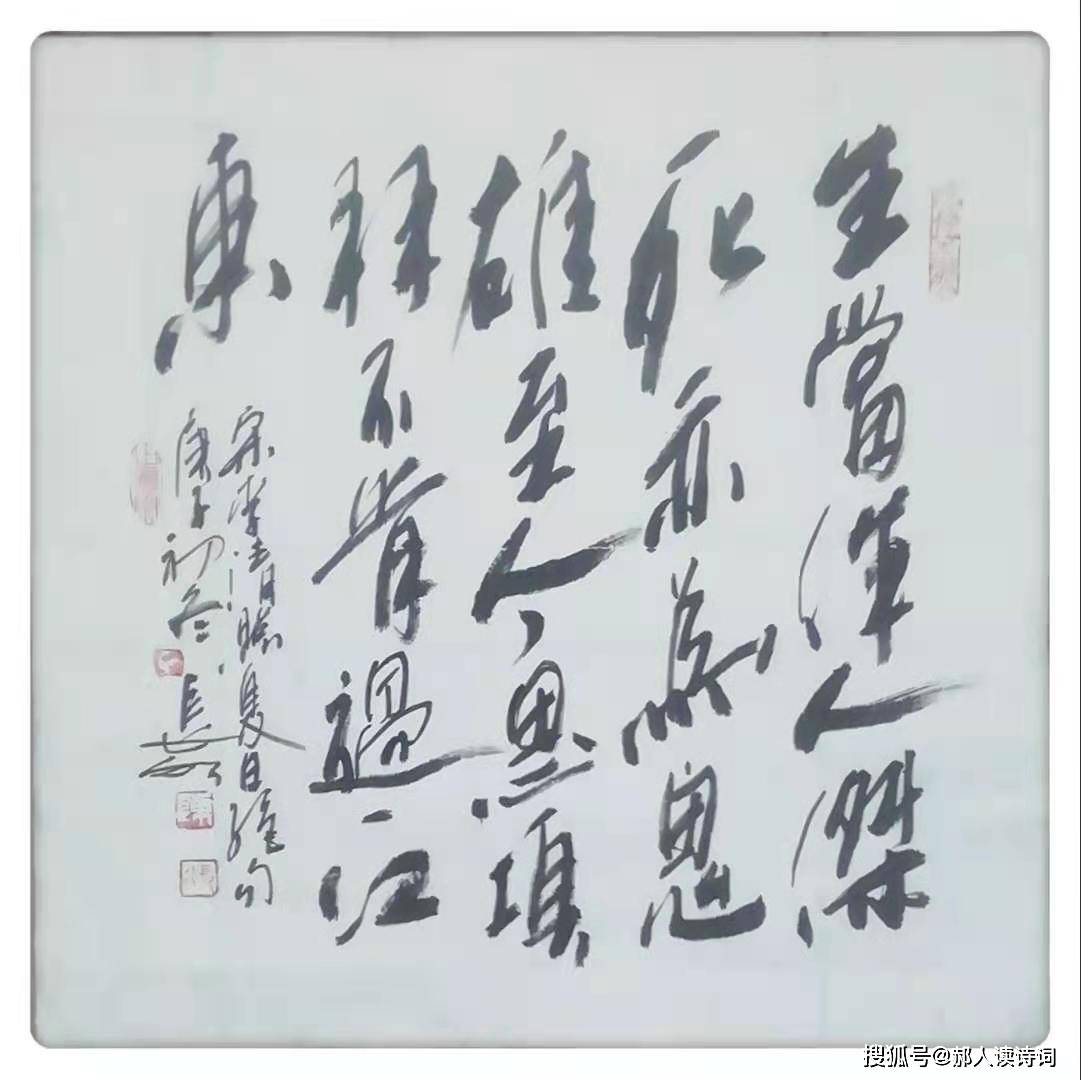 生當作人傑
死亦為鬼
雄至今思項
羽不肯過江
東
宋李清照夏日絕句
庚子初冬
搜狐号@郝人读诗词